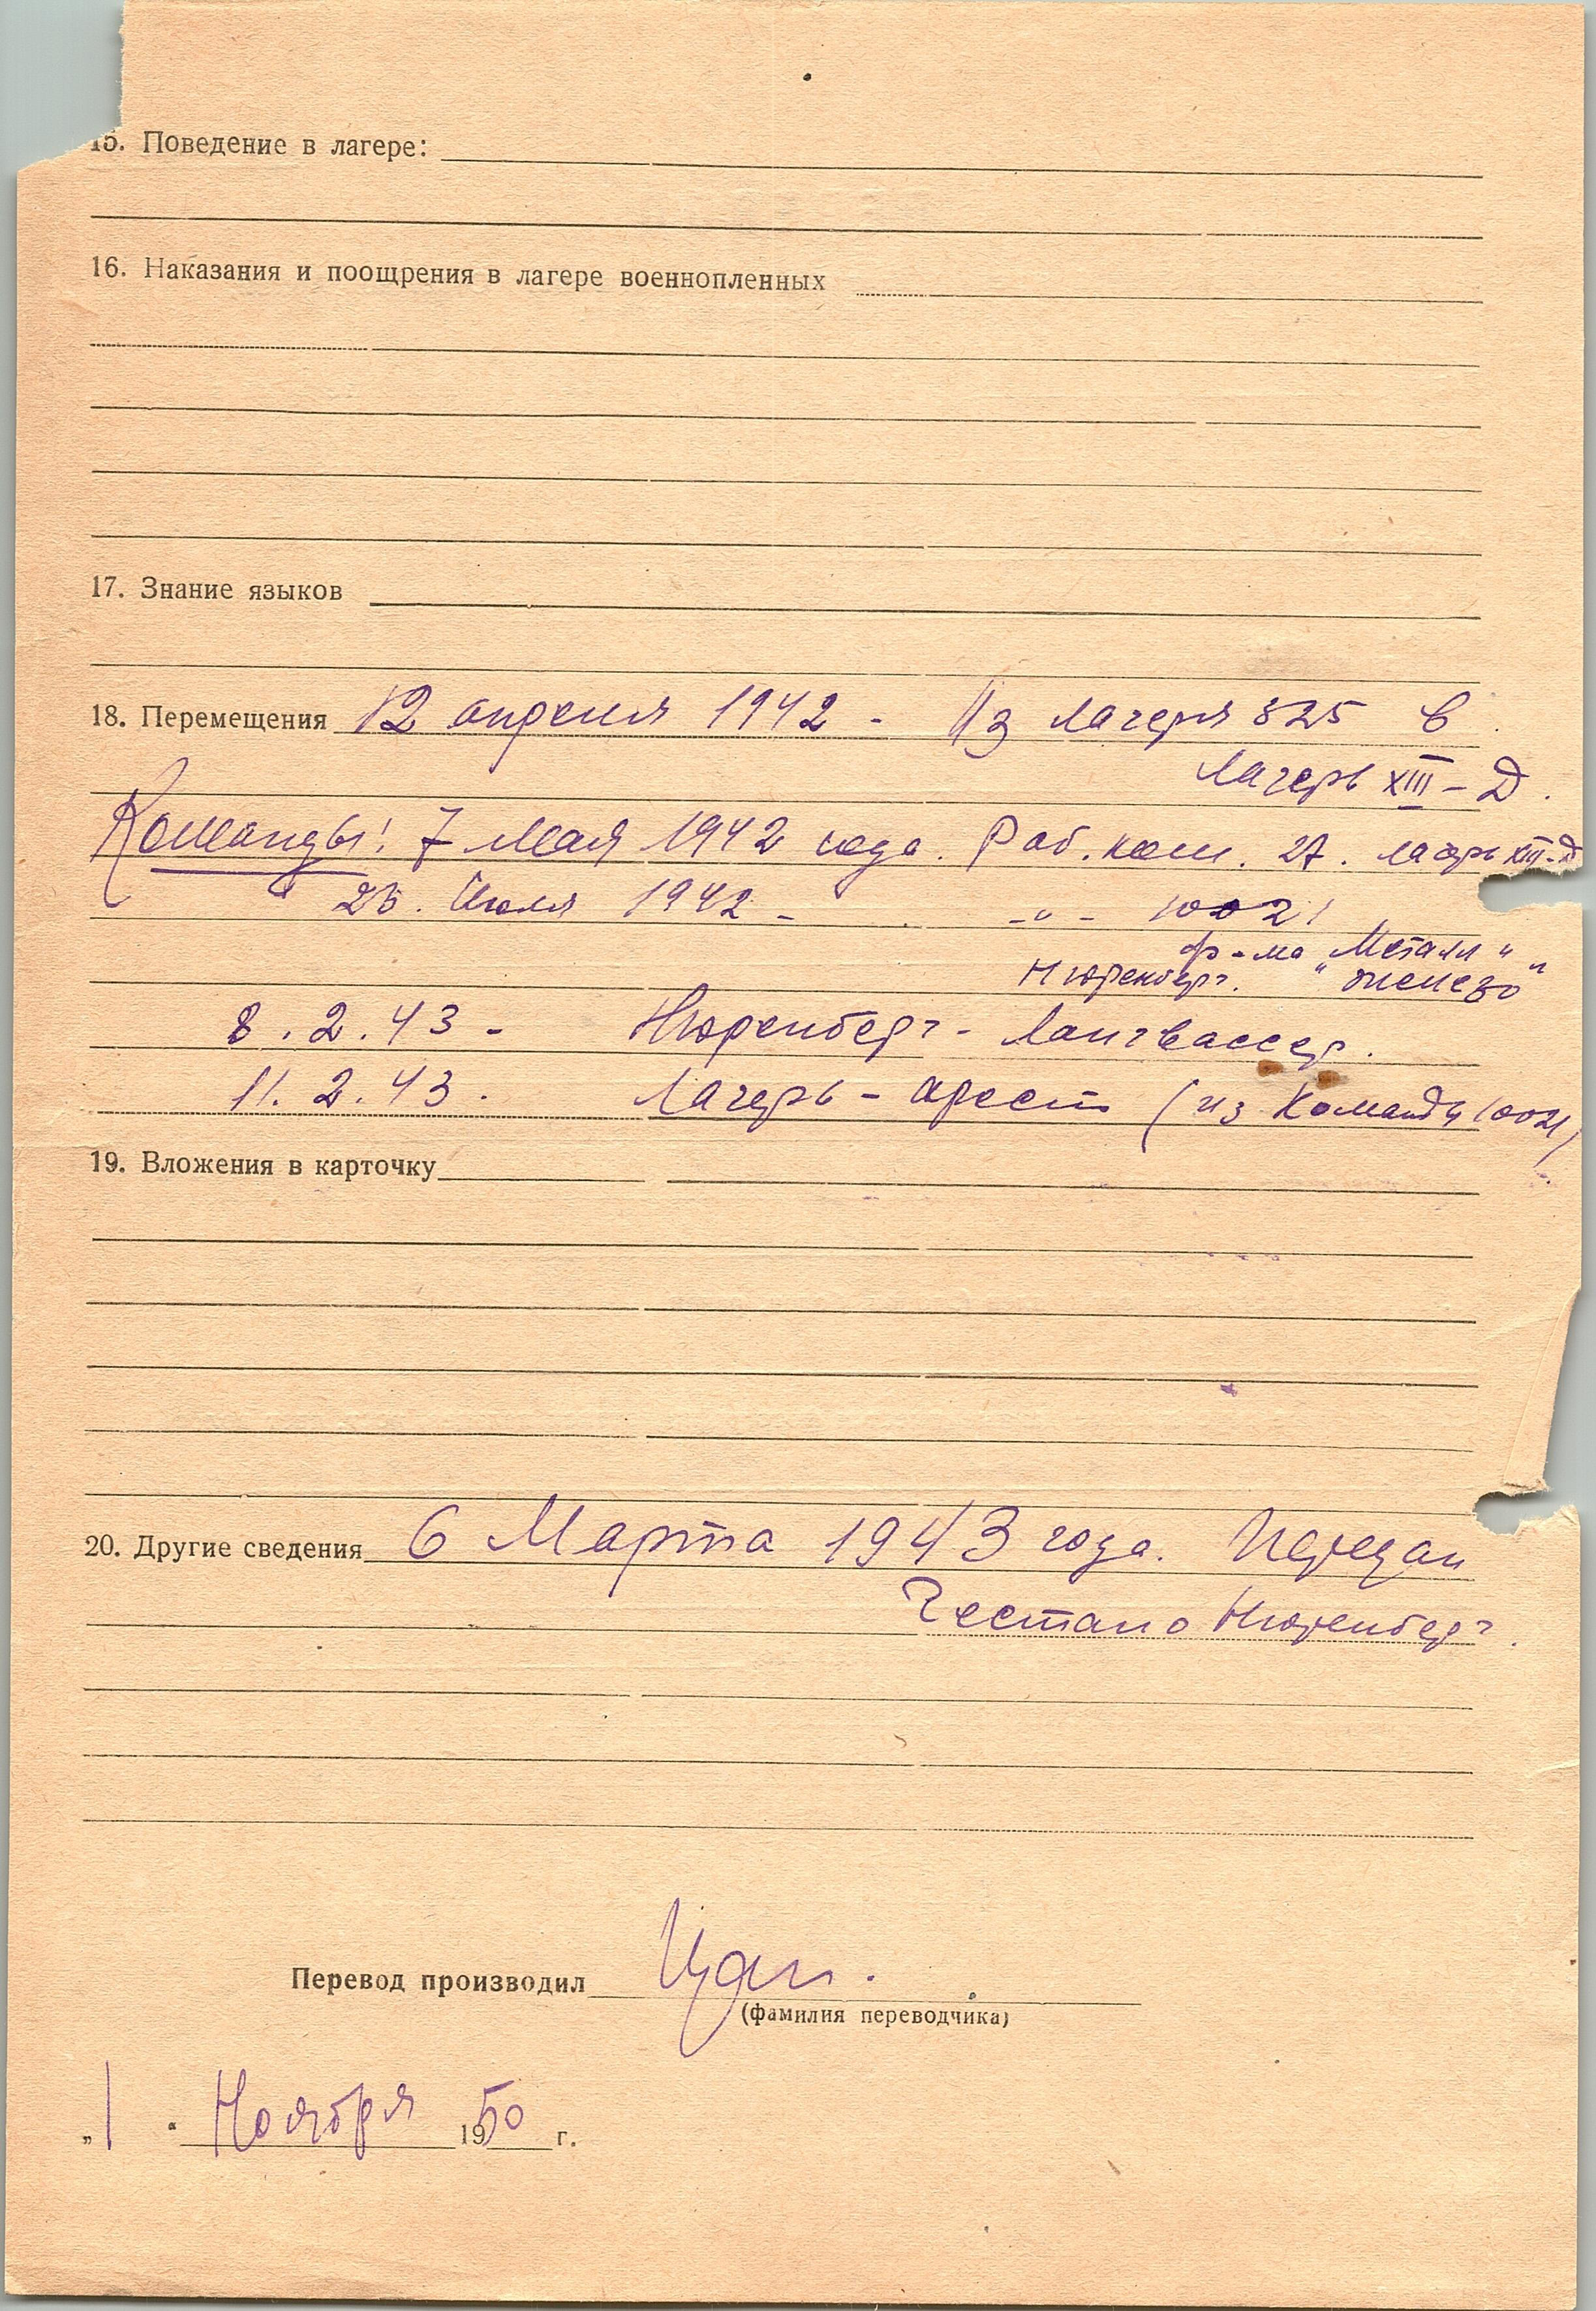 15. Поведение в лагере:
16. Наказания и поощрения в лагере военнопленных
17. Знание языков
18. Перемещения 12 апреля 1942 - Из лагеря 325 в
лагерь XIII - Д.
Команды! 7 мая 1942 года. Раб. ком. 27. лагерь XIII-Д
" 25. Июля 1942 - -"- 10021
ф-ма "Металл"
Нюренберг. "железо"
8.2.43 - Нюренберг - Лангвассер.
11.2.43. Лагерь - арест (из Команды 10021)
19. Вложения в карточку
20. Другие сведения 6 Марта 1943 года. Передан
Гестапо Нюренберг.
Перевод производил
(фамилия переводчика)
„1" Ноября 1950 г.